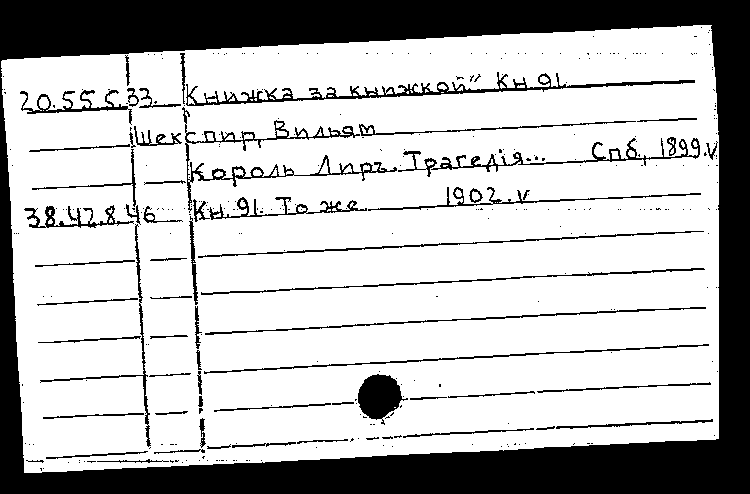 20.55.5.33. Книжка за книжкой" Кн 91
Шекспир, Вильям
Король Лиръ. Трагедія... Спб, 1899. v
38.42.8.46 Кн. 91. То же 1902. v